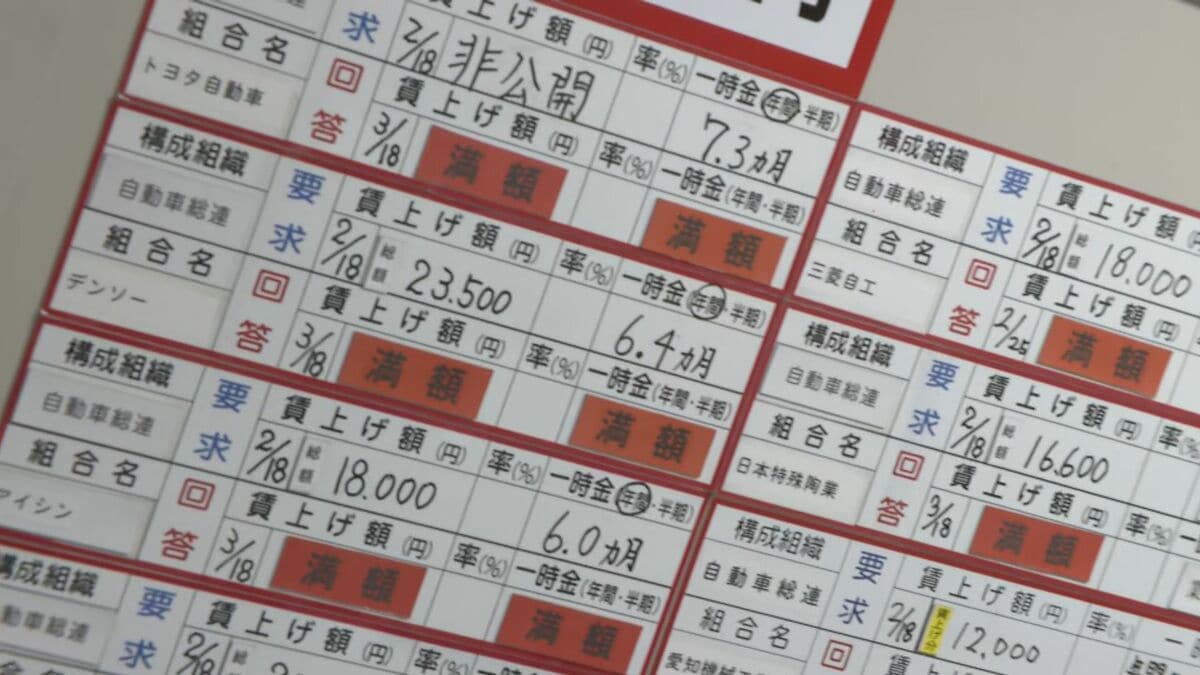 組合名
トヨタ自動車
要求
2/18
賃上げ額(円)
非公開
率(%)
一時金(年間・半期)
7.3ヵ月
回答
3/18
賃上げ額(円)
満額
率(%)
一時金(年間・半期)
満額
構成組織
自動車総連
組合名
デンソー
要求
2/18
賃上げ額(円)
総額
23.500
率(%)
一時金(年間・半期)
6.4ヵ月
回答
3/18
賃上げ額(円)
満額
率(%)
一時金(年間・半期)
満額
構成組織
自動車総連
組合名
アイシン
要求
2/18
賃上げ額(円)
総額
18.000
率(%)
一時金(年間・半期)
6.0ヵ月
回答
3/18
賃上げ額(円)
満額
率(%)
一時金(年間・半期)
満額
構成組織
自動車総連
要求
2/18
賃上げ額(円)
率(%)
構成組織
自動車総連
組合名
三菱自工
要求
2/18
賃上げ額
総額
18.000
回答
2/25
賃上げ額(円)
満額
構成組織
自動車総連
組合名
日本特殊陶業
要求
2/18
賃上げ額(円)
総額
16.600
率(%)
回答
3/18
賃上げ額(円)
満額
率(%)
構成組織
自動車総連
組合名
愛知機械
要求
2/18
賃上げ額(円)
賃上げ分
12.000
率(%)
回
賃上げ額(円)